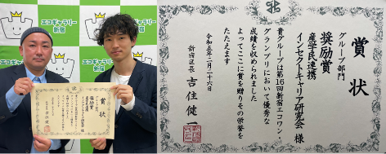 エコギャラリー
新宿
賞状
グループ部門
奨励賞
産学民連携
インセクトキャリア研究会 様
貴グループは第16回新宿エコワン・
グランプリにおいて優秀な
成績を収められました
よってここに賞を贈りその栄誉を
たたえます
令和五年二月二十六日
新宿区長 吉住健一